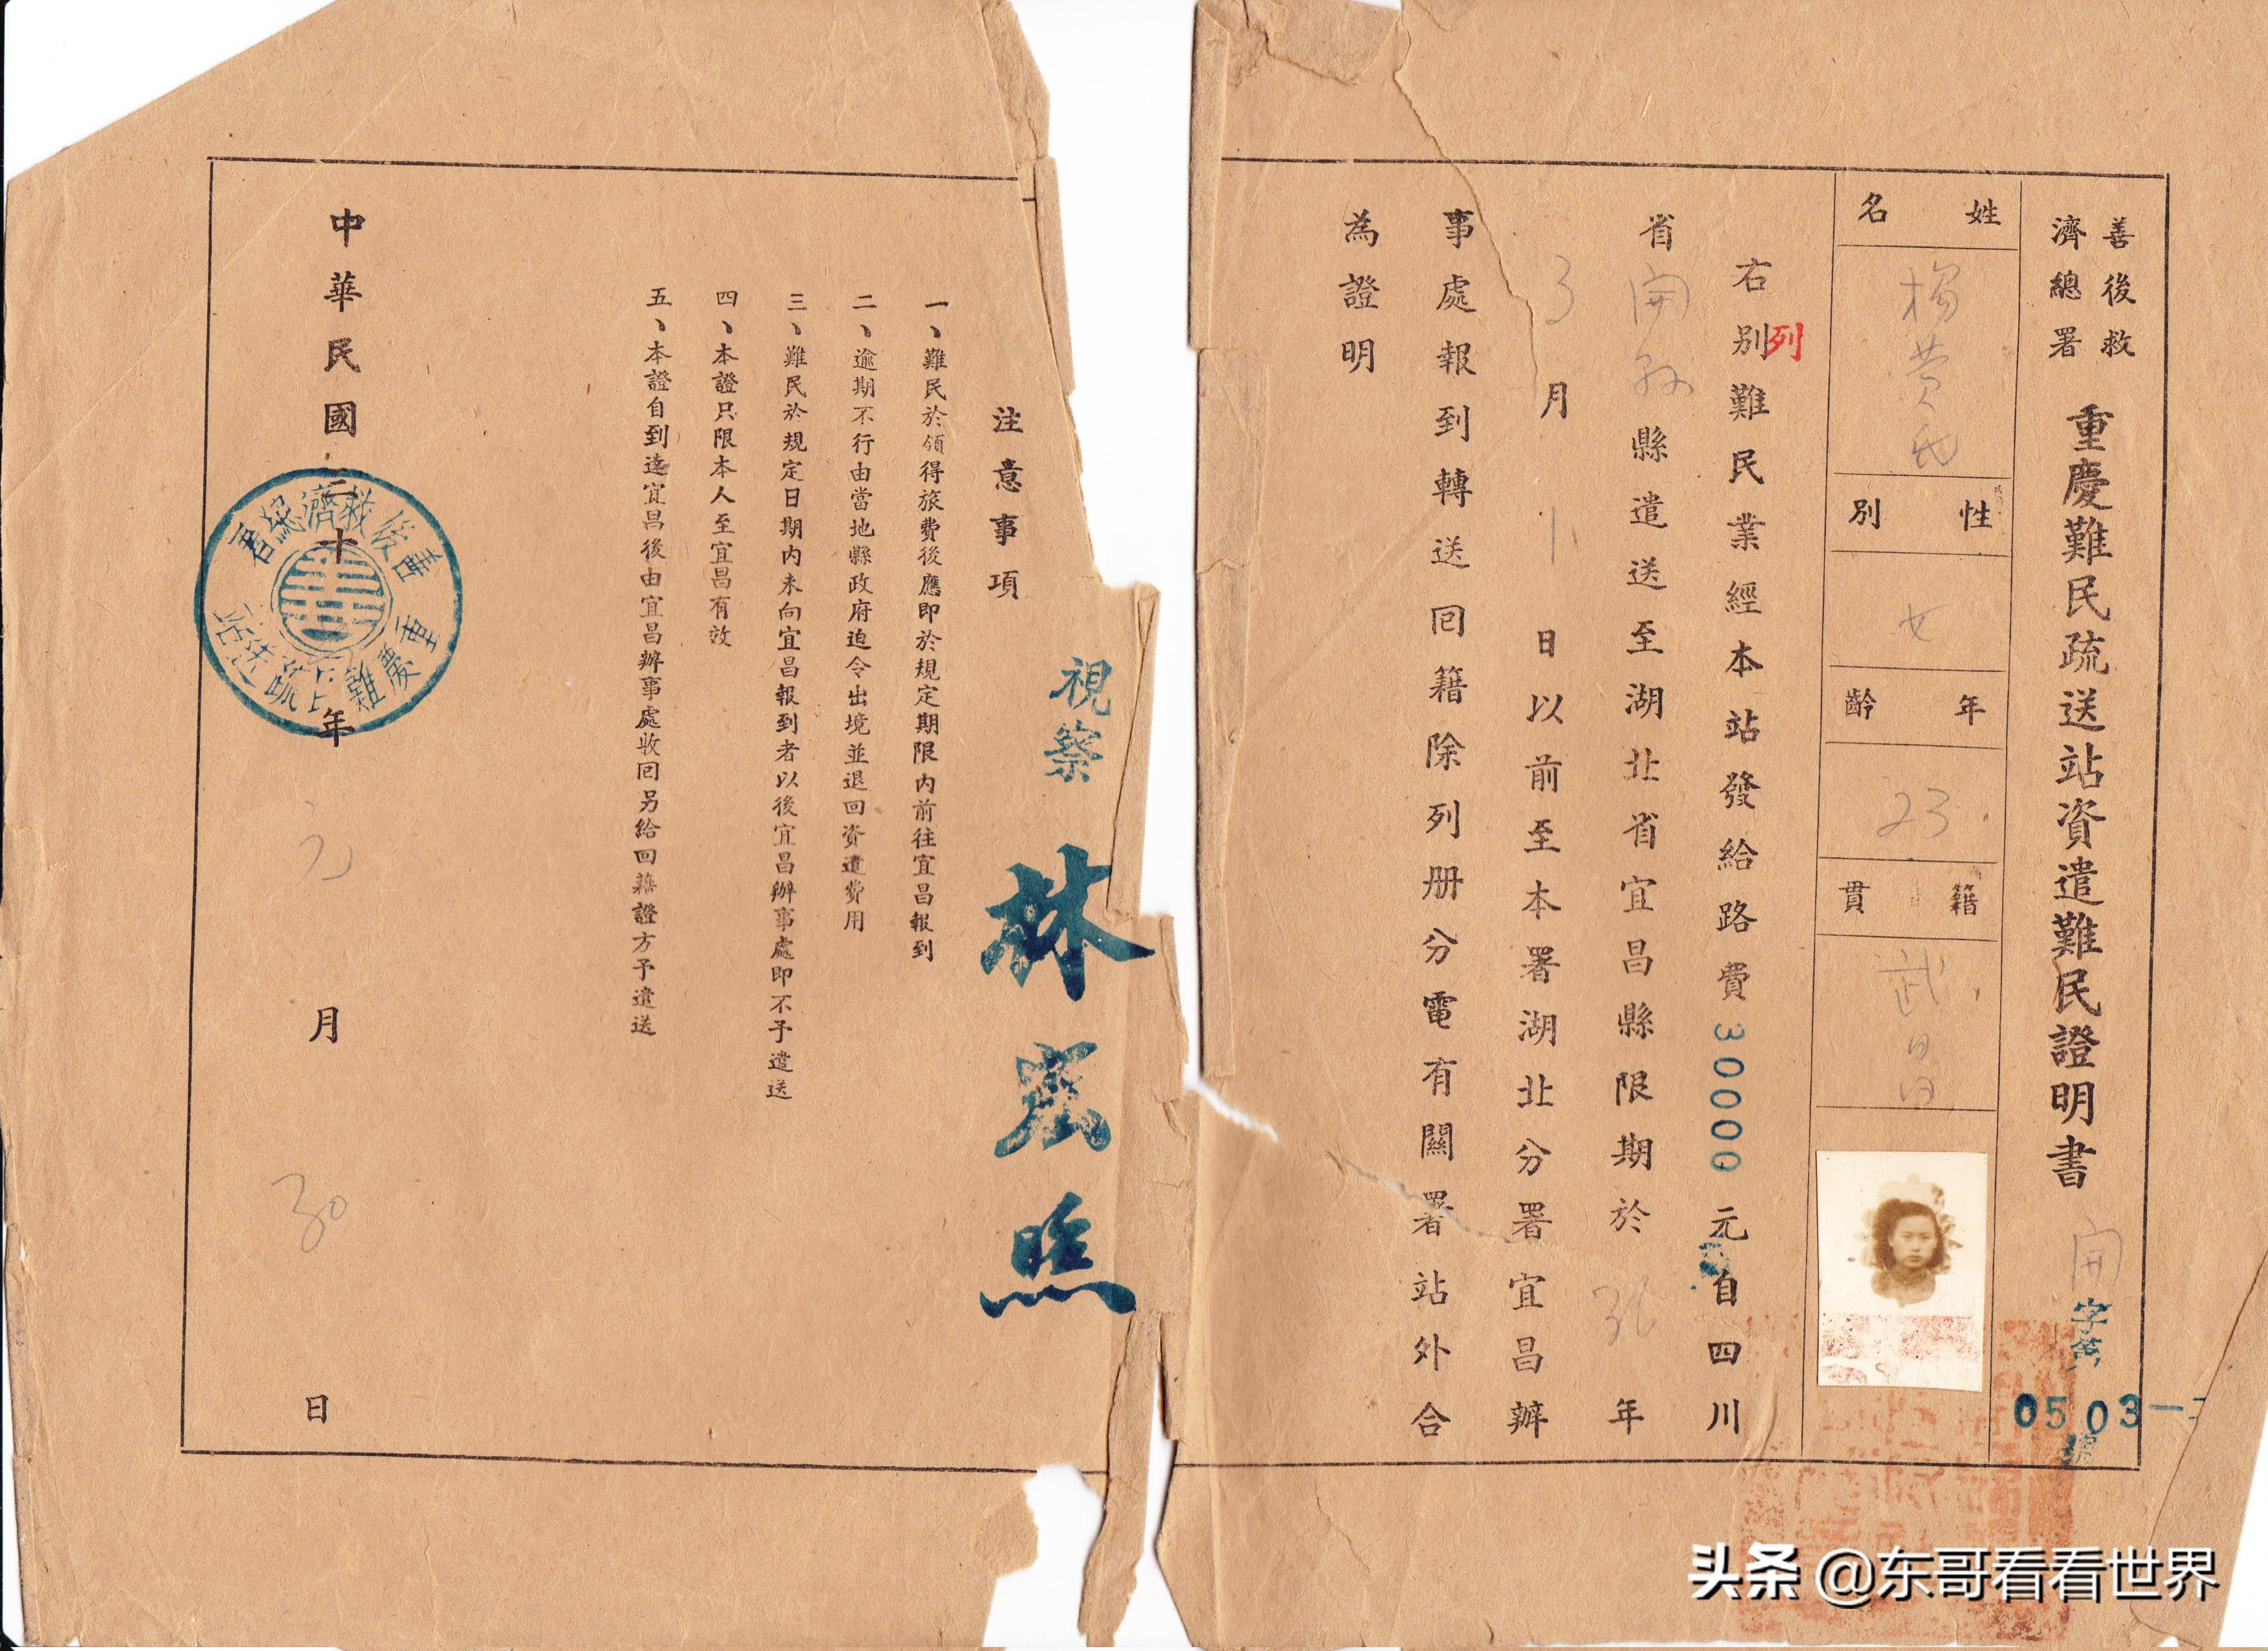 善後救
濟總署
重慶難民疏送站資遣難民證明書
開字第
0503一
號
姓名
楊黄氏
性別
女
年齡
23
籍貫
武昌
右別難民業經本站發給路費30000元自四川
列
省開縣縣遣送至湖北省宜昌縣限期於36年
3月1日以前至本署湖北分署宜昌辦
事處報到轉送回籍除列册分電有關署站外合
為證明
視察
林 焦
注意事項
一、難民於領得旅費後應即於規定期限内前往宜昌報到
二、逾期不行由當地縣政府迫令出境並退回資遣費用
三、難民於規定日期内未向宜昌報到者以後宜昌辦事處即不予遣送
四、本證只限本人至宜昌有效
五、本證自到達宜昌後由宜昌辦事處收回另給回籍證方予遣送
中華民國三十年元月30日
善後救濟總署
重慶難民疏送站
头条 @东哥看看世界